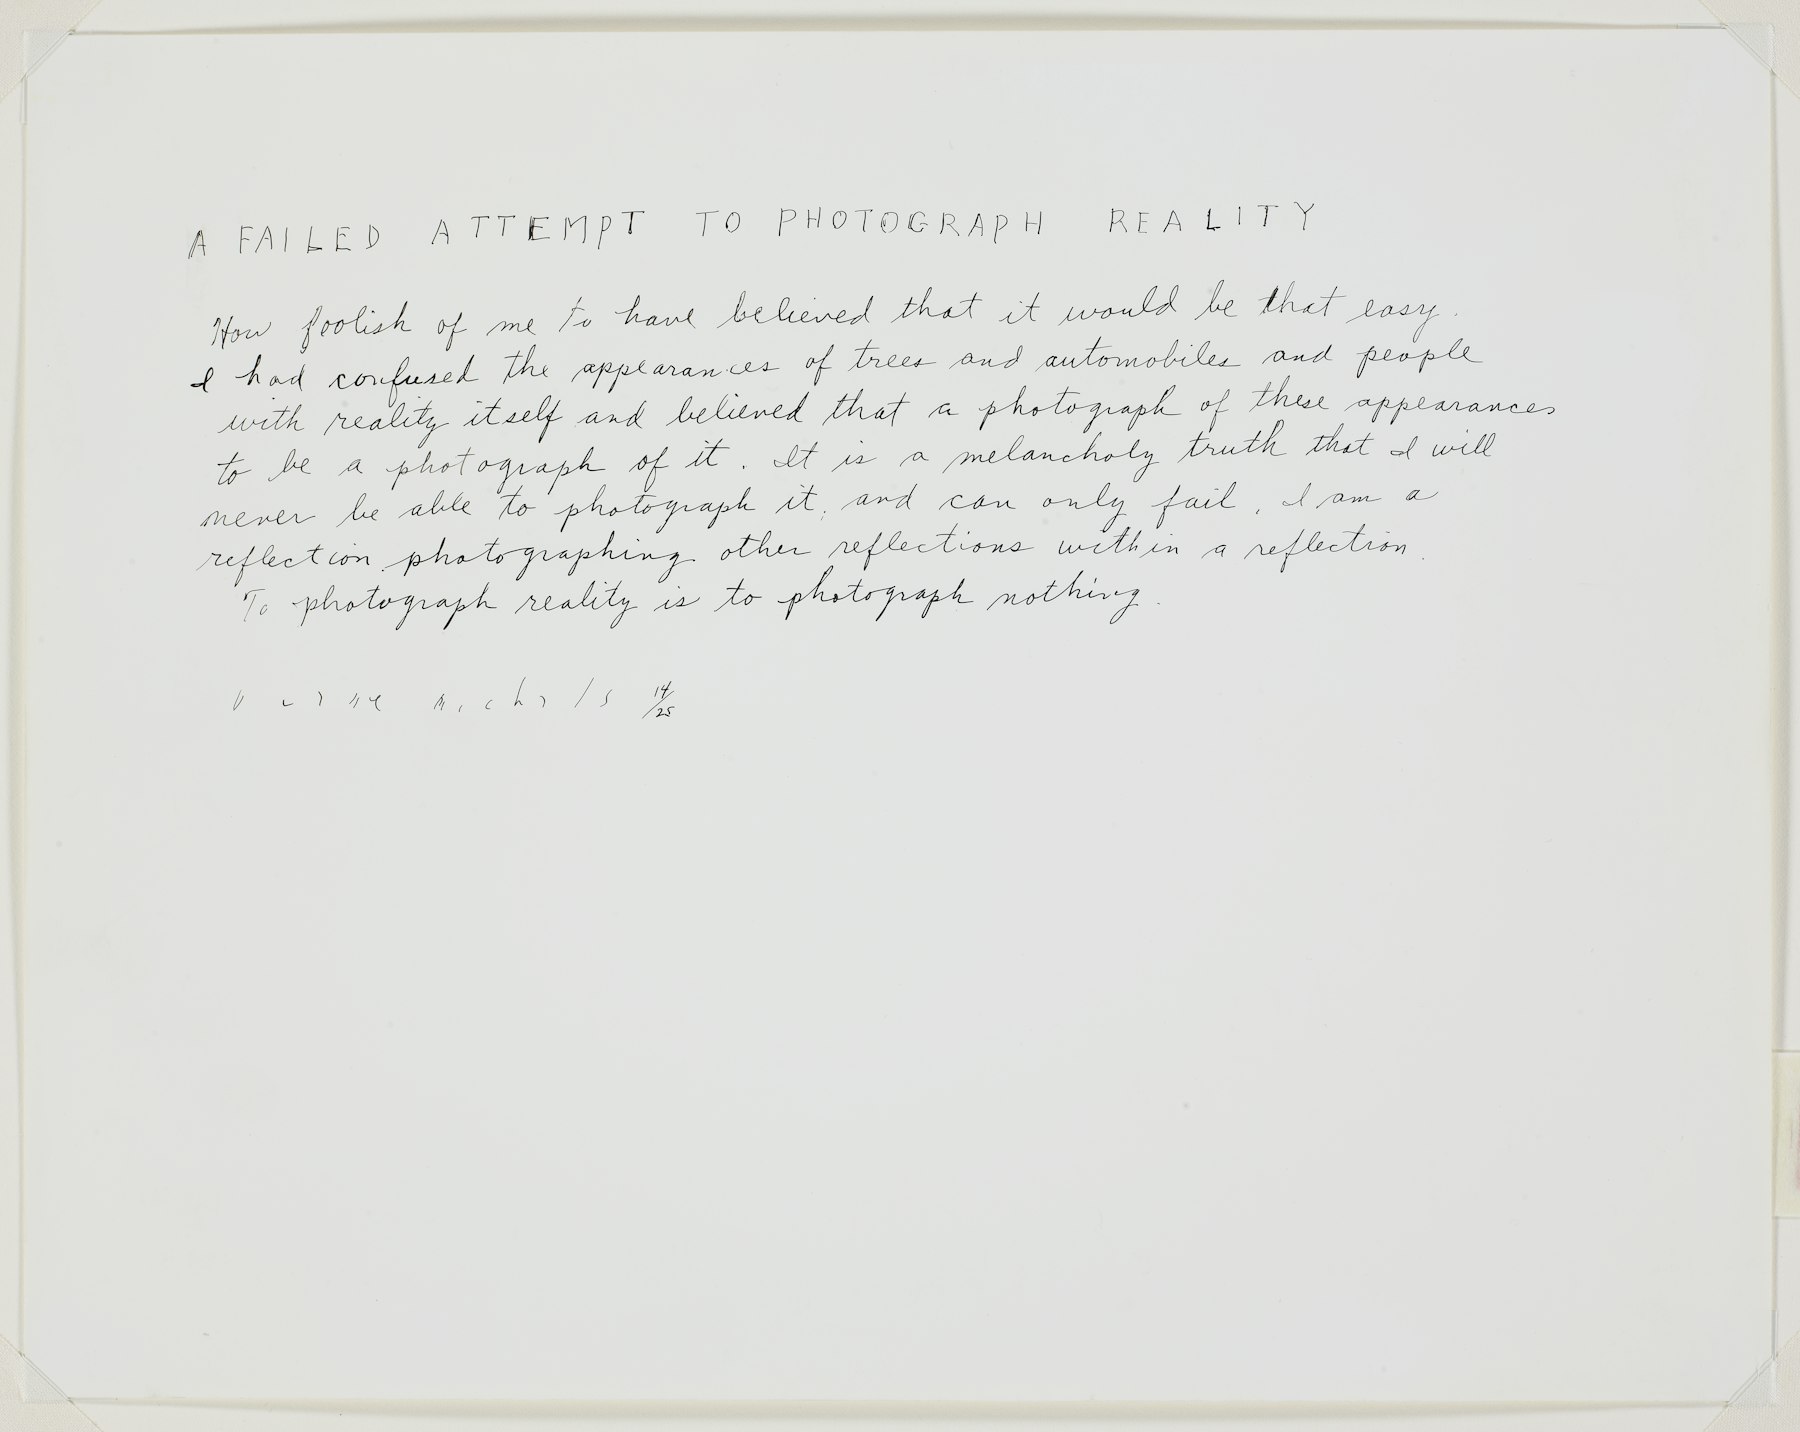 A FAILED ATTEMPT TO PHOTOGRAPH REALITY
How foolish of me to have believed that it would be that easy.
I had confused the appearances of trees and automobiles and people
with reality itself and believed that a photograph of these appearances
to be a photograph of it. It is a melancholy truth that I will
never be able to photograph it, and can only fail. I am a
reflection photographing other reflections within a reflection.
To photograph reality is to photograph nothing.
14/25